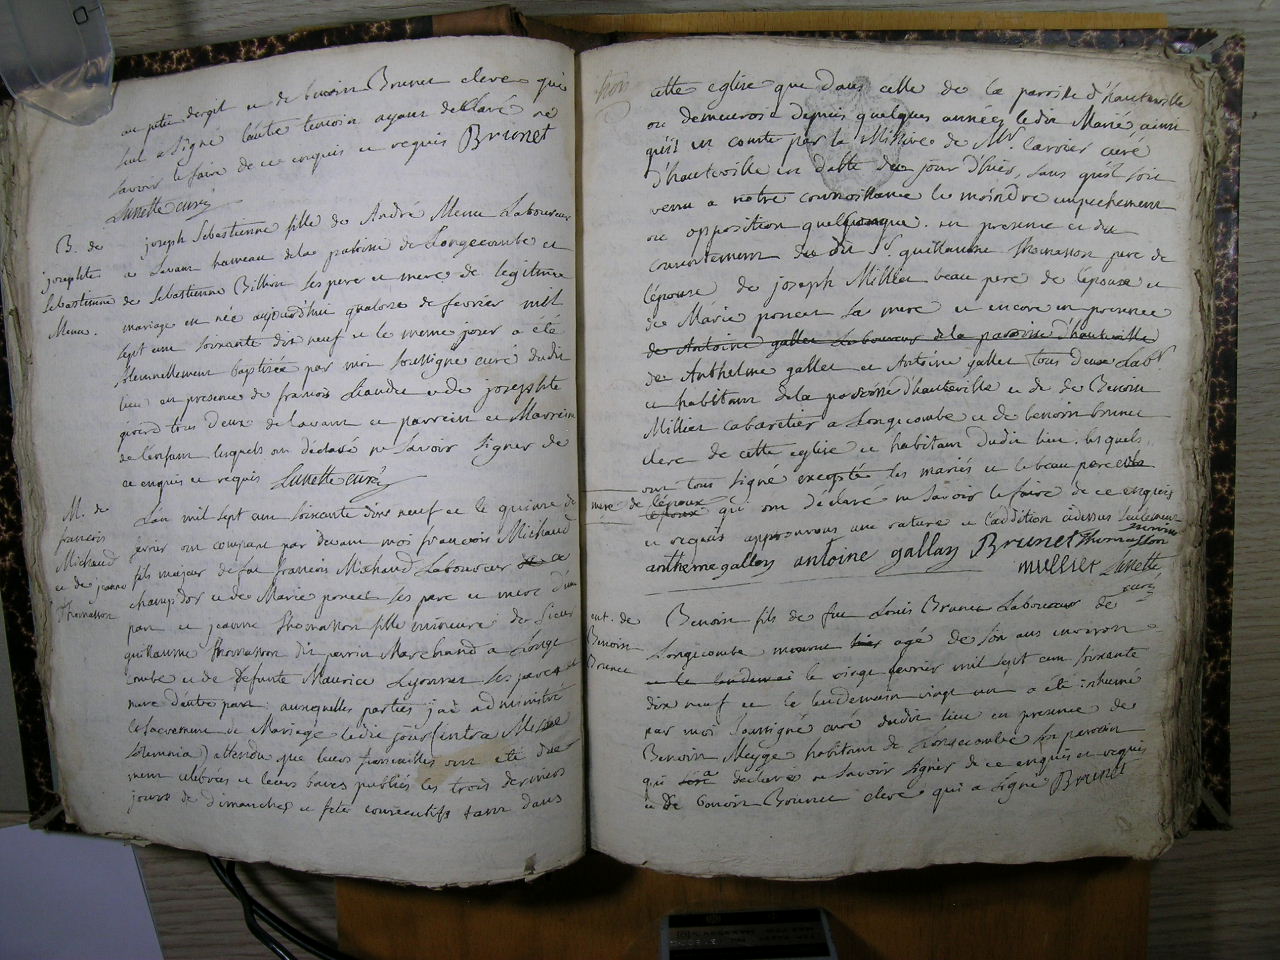 au petit dergit et de benoin Brunet clerc qui
seul a signé l'autre temoin ayant declaré ne
savoir le faire de ce enquis et requis Brunet
Lunette curé
B. de
josephte
Sebastienne
Menu.
joseph Sebastienne fille de André Menu Laboureur
a Lavant hameau de la paroisse de Longecombe et
de Sebastienne Billion ses pere et mere de legitime
mariage est née aujourd'hui quatorze de fevrier mil
sept cent soixante dix neuf et le meme jour a été
solemnellement baptisée par moi soussigné curé dudit
lieu en presence de francois Liaudet et de josephte
girerd tous deux de lavant et parrein et Marreine
de l'enfant lesquels ont déclaré ne savoir signer de
ce enquis et requis Lunette curé
M. de
francois
Michaud
et de jeanne
Thomasson
L'an mil sept cent soixante dix neuf et le quinze de
fevrier ont comparu par devant moi francois Michaud
fils majeur de feu francois Michaud Laboureur a
champdor et de Marie poncet ses pere et mere d'une
part et jeanne Thomasson fille mineure de Sieur
guillaume Thomasson du parvin Marchand a Longe
combe et de défunte Maurice Lyonnet ses pere et
mere d'autre part: auxquelles parties j'ai administré
le sacrement de Mariage ledit jour (intra Missae
solemnia) attendu que leurs fiancailles ont été due
ment celebrées et leurs bancs publiés les trois derniers
jours de dimanches et fetes consecutifs tant dans
cette eglise que dans celle de la paroisse d'hauteville
ou demeuroit depuis quelques années ledit Marié ainsi
qu'il en conste par la Missive de Mr. Carrier curé
d'hauteville en datte du jour d'hier, sans qu'il soit
venu a notre connoissance le moindre empechement
ou opposition quelconque. en presence et du
consentement du dit Sr. guillaume Thomasson pere de
l'épouse de joseph Millier beau pere de l'époux et
de Marie poncet sa mere et encore en presence
de Antoine gallet laboureur de la paroisse d'hauteville
de Anthelme gallet et Antoine gallet tous deux Labr
et habitant de la paroisse d'hauteville et de Benoin
Millier cabaretier a Longecombe et de benoin brunet
clerc de cette eglise et habitant dudit lieu. lesquels
ont tous signé excepté les mariés et le beau pere et la
mere de l'époux qui ont déclaré ne savoir le faire de ce enquis
et requis approuvons une rature et l'addition cidessus seulement
antheme gallay antoine gallay Brunet Thomasson
millier Lunette
curé
ent. de
Benoin
Brunet
Benoin fils de feu Louis Brunet Laboureur de
Longecombe mourut agé de dix ans environ
et le lendemai le vingt fevrier mil sept cent soixante
dix neuf et le lendemain vingt un a été inhumé
par moi soussigné curé dudit lieu en presence de
Benoin Meyge habitant de Longecombe son parrain
qui a declaré ne savoir signer de ce enquis et requis
et de benoin Brunet clerc qui a signé Brunet